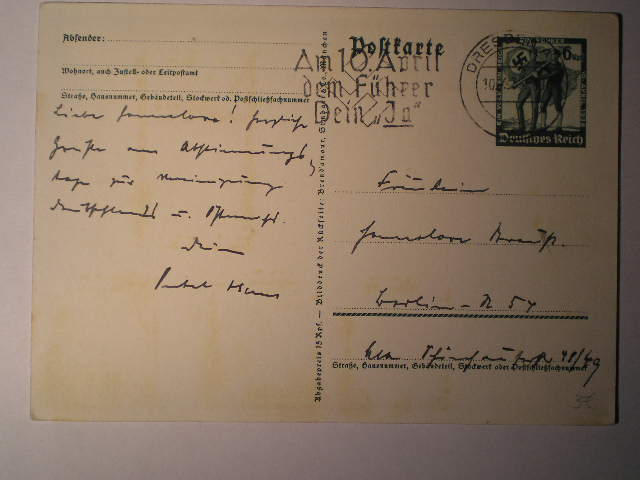 Absender:
Wohnort, auch Zustell- oder Leitpostamt
Straße, Hausnummer, Gebäudeteil, Stockwerk od. Postschließfachnummer
Liebe Hannelore! Herzliche
Grüße am Abstimmungs
tage zur Vereinigung
Deutschlands u. Österreichs.
Dein
Onkel Hans
Abgabepreis 15 Rpf. — Bilddruck der Rückseite: Brend'amour, Simhart & Co., München
Postkarte
Am 10. April
dem Führer
Dein „Ja“
DRESDEN
6
Deutsches Reich
Fräulein
Hannelore
Berlin - N 54
Straße, Hausnummer, Gebäudeteil, Stockwerk oder Postschließfachnummer